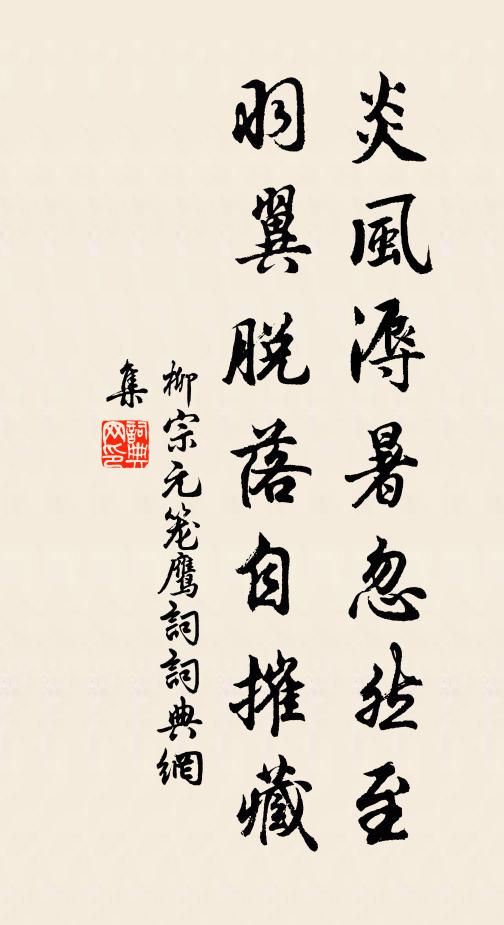 炎風溽暑忽然至
羽翼脱落自摧藏
柳宗元笼鹰詞詞典網
集
詞典网印